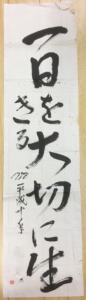 一日を大切に生
きる
平成十年